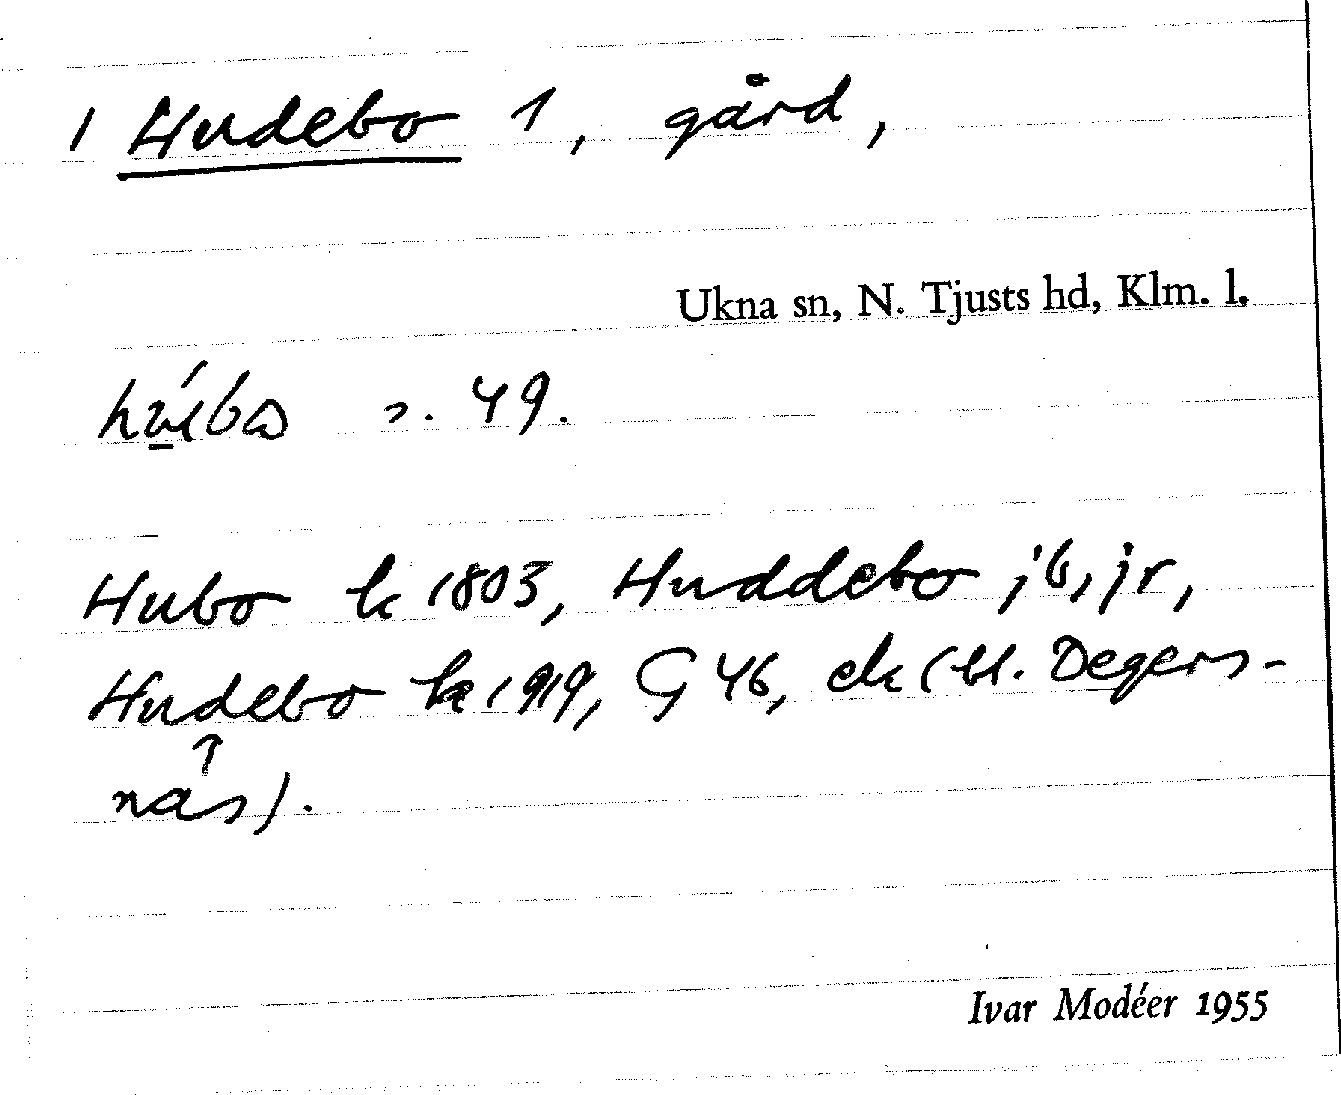 1 Hudebo 1, gård,
Ukna sn, N. Tjusts hd, Klm. l.
s. 49.
Hubo k 1803, Huddebo jb, jr,
Hudebo k 1919, G 46, ek (bl. Degers-
↑
näs).
Ivar Modéer 1955